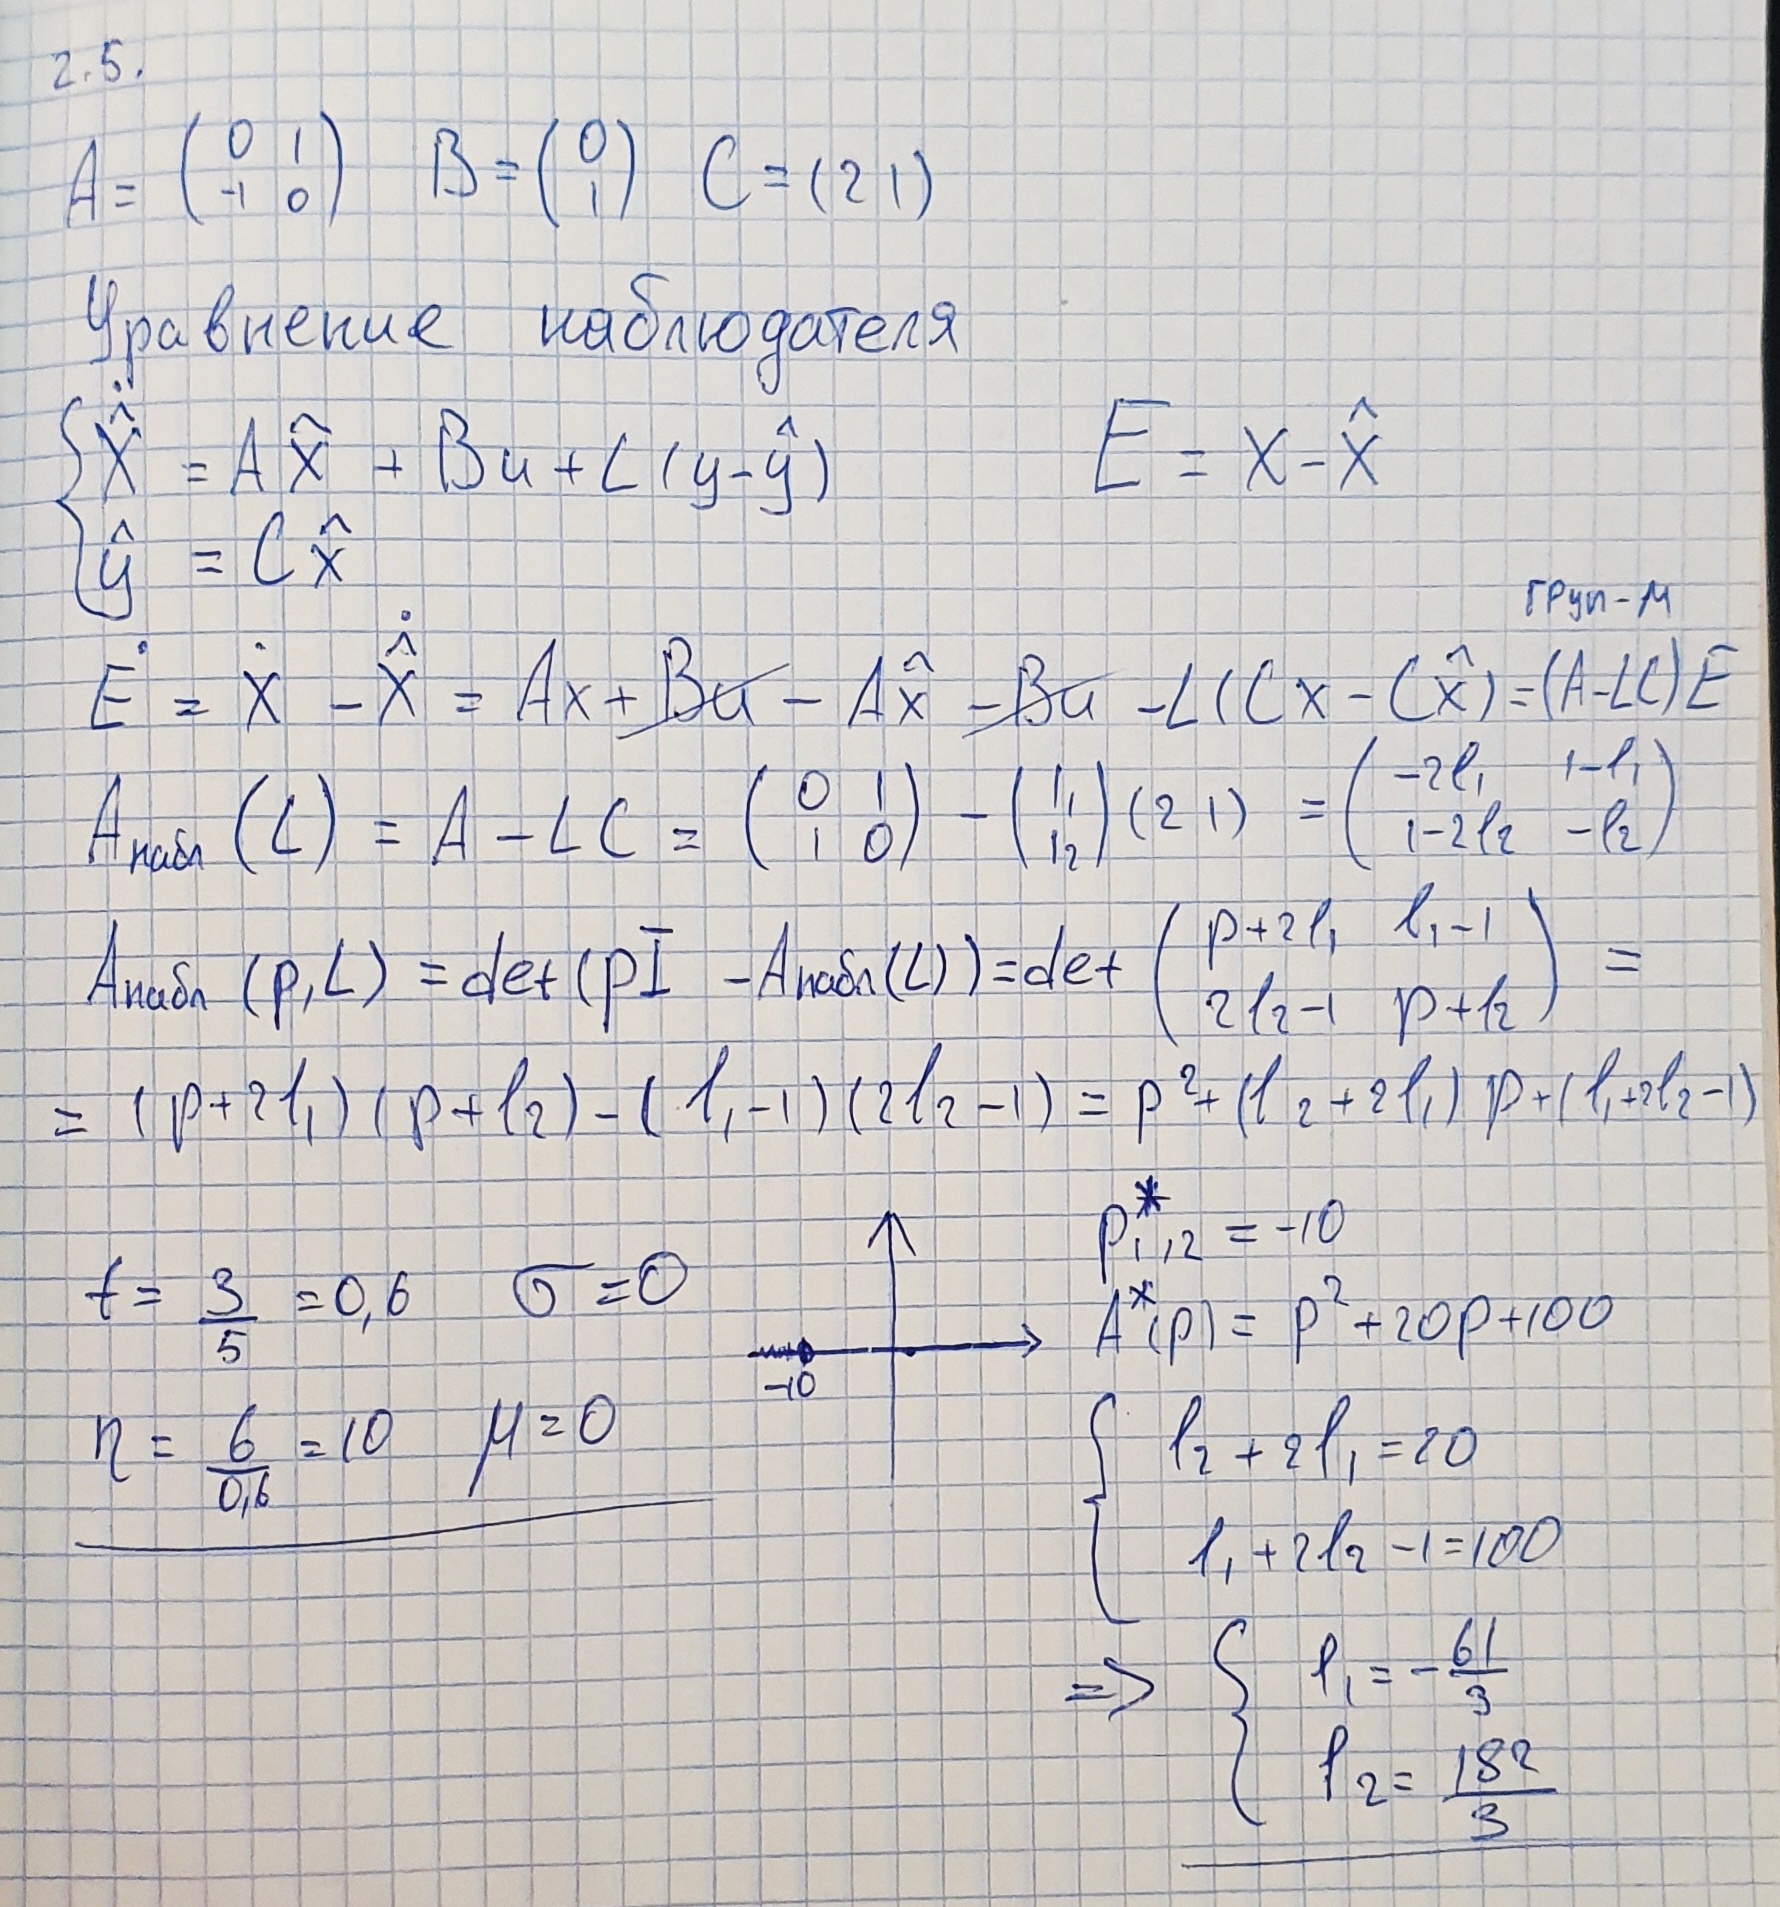 2.5.
A = (0 1; -1 0) B = (0; 1) C = (2 1)
Уравнение наблюдателя
{ẋ̂ = Ax̂ + Bu + L(y-ŷ) E = x - x̂
ŷ = Cx̂
груп-м
Ė = ẋ - ẋ̂ = Ax + Bu - Ax̂ - Bu - L(Cx - Cx̂) = (A-LC)E
Aнабл (L) = A - LC = (0 1; 1 0) - (l₁; l₂)(2 1) = (-2l₁ 1-l₁; 1-2l₂ -l₂)
Aнабл (p,L) = det(pI - Aнабл(L)) = det (p+2l₁ l₁-1; 2l₂-1 p+l₂) =
= (p+2l₁)(p+l₂) - (l₁-1)(2l₂-1) = p²+(l₂+2l₁)p+(l₁+2l₂-1)
t = 3/5 = 0,6 σ=0
η = 6/0,6 = 10 μ=0
-10
p*₁,₂ = -10
A*(p) = p²+20p+100
{l₂+2l₁=20
l₁+2l₂-1=100
=> {l₁ = -61/3
l₂ = 182/3